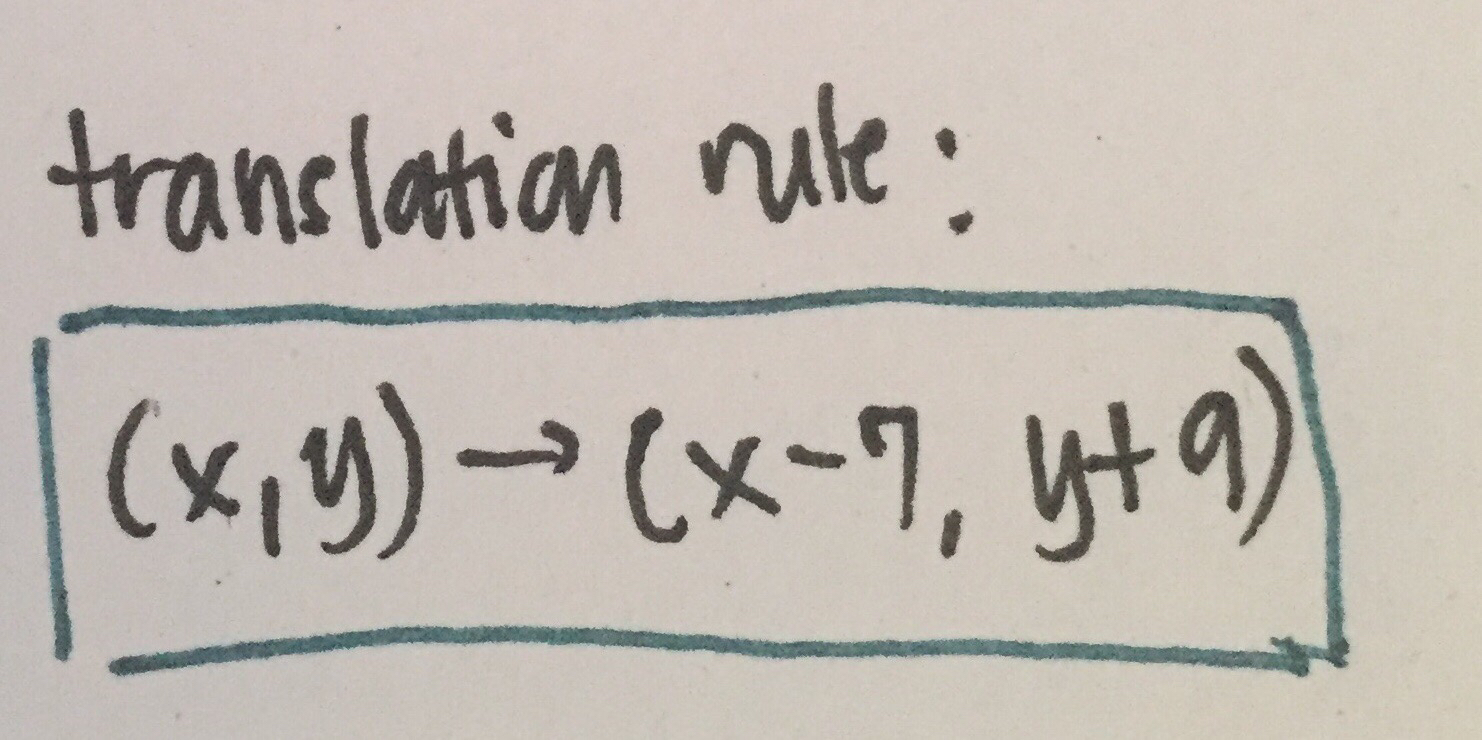 translation rule:
(x,y)→(x-7, y+9)